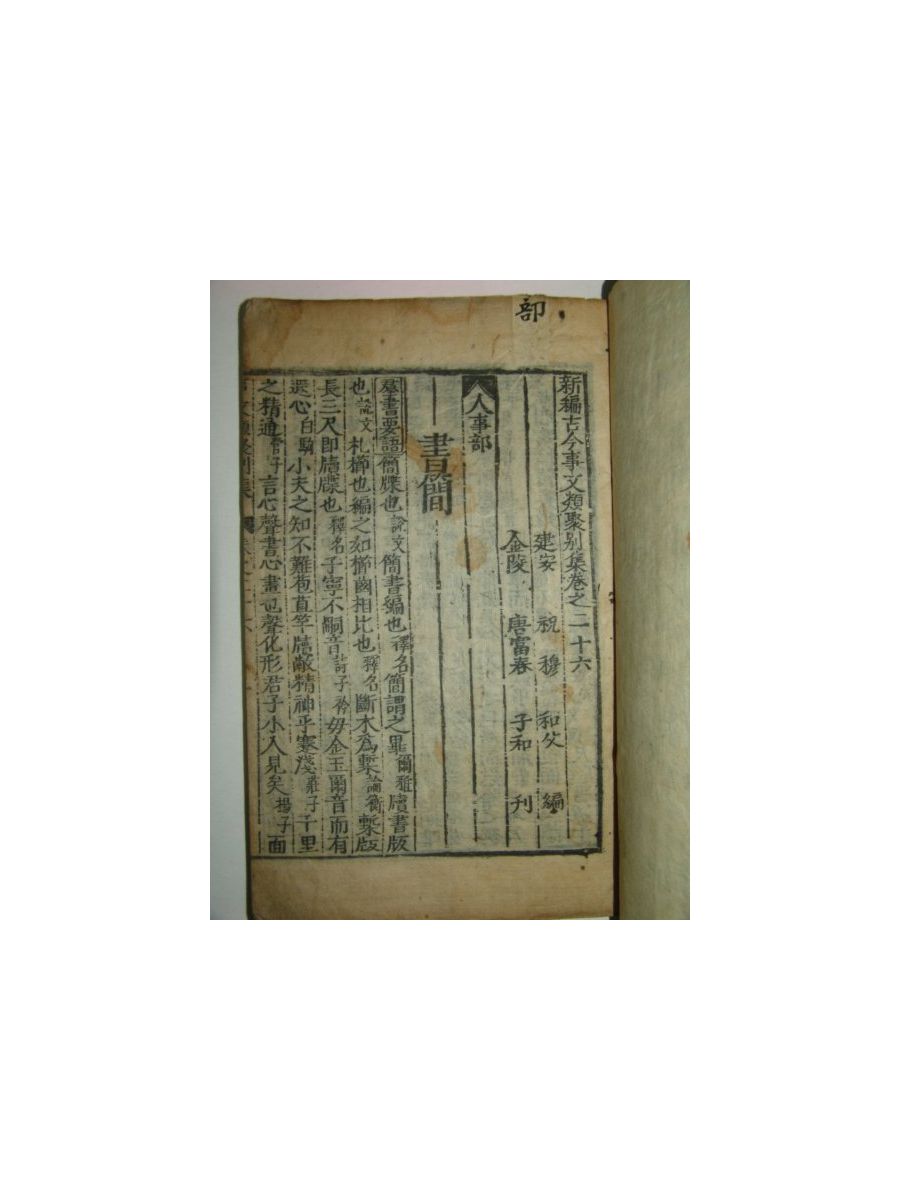 部
新編古今事文類聚别集卷之二十六
建安 祝穆 和父 編
金陵 唐富春 子和 刊
人事部
書簡
羣書要語簡牒也說文簡書編也釋名簡謂之畢爾雅牘書版
也說文札櫛也編之如櫛齒相比也釋名斷木爲槧論衡槧版
長三尺即牘牒也釋名子寧不嗣音詩子衿毋金玉爾音而有
遐心白駒小夫之知不離苞苴竿牘敝精神乎蹇淺莊子千里
之精通管子言心聲書心畫也聲化形君子小人見矣揚子面